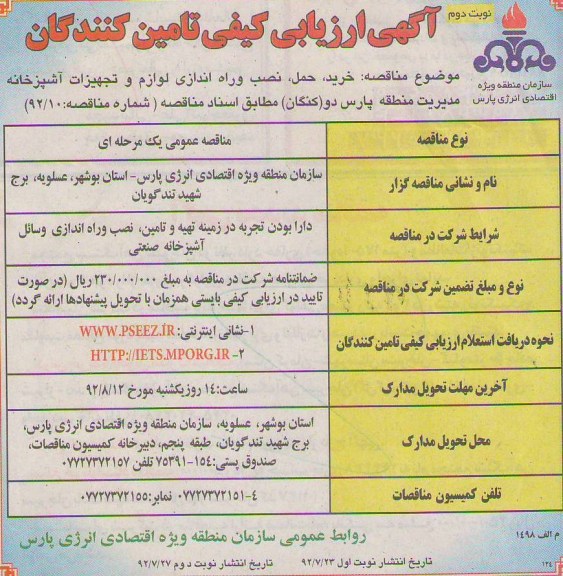 نوبت دوم
آگهی ارزیابی کیفی تامین کنندگان
سازمان منطقه ویژه
اقتصادی انرژی پارس
موضوع مناقصه: خرید، حمل، نصب وراه اندازی لوازم و تجهیزات آشپزخانه
مدیریت منطقه پارس دو(کنگان) مطابق اسناد مناقصه ( شماره مناقصه:۹۲/۱۰)
نوع مناقصه
مناقصه عمومی یک مرحله ای
نام و نشانی مناقصه گزار
سازمان منطقه ویژه اقتصادی انرژی پارس- استان بوشهر، عسلویه، برج
شهید تندگویان
شرایط شرکت در مناقصه
دارا بودن تجربه در زمینه تهیه و تامین، نصب وراه اندازی وسائل
آشپزخانه صنعتی
نوع و مبلغ تضمین شرکت در مناقصه
ضمانتنامه شرکت در مناقصه به مبلغ ۲۳۰/۰۰۰/۰۰۰ ریال (در صورت
تایید در ارزیابی کیفی بایستی همزمان با تحویل پیشنهادها ارائه گردد)
نحوه دریافت استعلام ارزیابی کیفی تامین کنندگان
۱-نشانی اینترنتی: WWW.PSEEZ.IR
۲- HTTP://IETS.MPORG.IR
آخرین مهلت تحویل مدارک
ساعت:۱۴ روزیکشنبه مورخ ۹۲/۸/۱۲
محل تحویل مدارک
استان بوشهر، عسلویه، سازمان منطقه ویژه اقتصادی انرژی پارس،
برج شهید تندگویان، طبقه پنجم، دبیرخانه کمیسیون مناقصات،
صندوق پستی:۱۵۴-۷۵۳۹۱ تلفن ۰۷۷۲۷۳۷۲۱۵۷
تلفن کمیسیون مناقصات
۰۷۷۲۷۳۷۲۱۵۱-۴ نمابر:۰۷۷۲۷۳۷۲۱۵۵
روابط عمومی سازمان منطقه ویژه اقتصادی انرژی پارس
م الف ۱۴۹۸
تاریخ انتشار نوبت اول ۹۲/۷/۲۳ تاریخ انتشار نوبت دوم ۹۲/۷/۲۷
۱۲۴